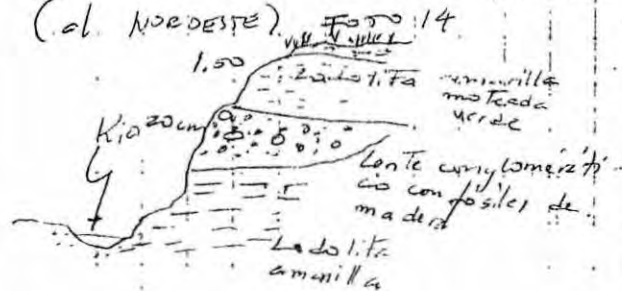 (al NOROESTE) FOTO 14
1.50
Lodolita amarilla
moteada
verde
Río 20 cm
Lente conglomeráti-
cio con fósiles de
madera
Lodolita
amarilla